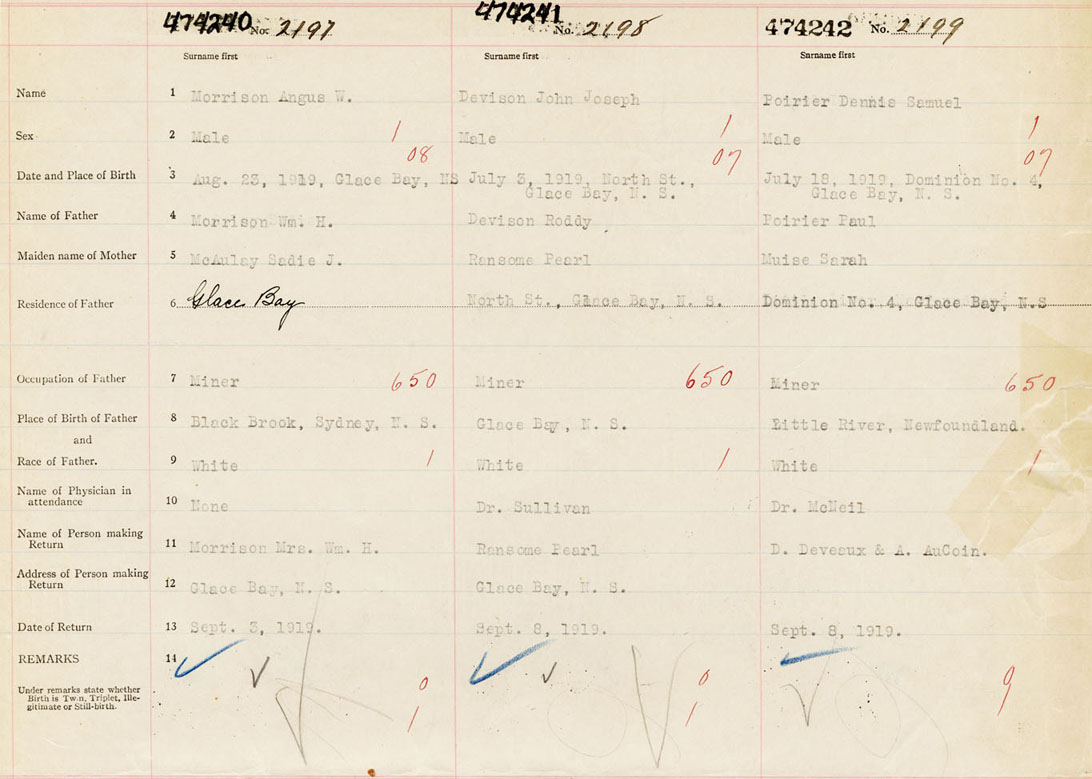 474240 No. 2197 474241 No. 2198 474242 No. 2199
Surname first Surname first Surname first
Name 1 Morrison Angus W. Devison John Joseph Poirier Dennis Samuel
Sex 2 Male 1 Male 1 Male 1
08 07 07
Date and Place of Birth 3 Aug. 23, 1919, Glace Bay, NS July 3, 1919, North St., July 18, 1919, Dominion No. 4,
Glace Bay, N. S. Glace Bay, N. S.
Name of Father 4 Morrison Wm. H. Devison Roddy Poirier Paul
Maiden name of Mother 5 McAulay Sadie J. Ransome Pearl Muise Sarah
Residence of Father 6 Glace Bay North St., Glace Bay, N. S. Dominion No. 4, Glace Bay, N.S
Occupation of Father 7 Miner 650 Miner 650 Miner 650
Place of Birth of Father 8 Black Brook, Sydney, N. S. Glace Bay, N. S. Little River, Newfoundland.
and
Race of Father. 9 White 1 White 1 White 1
Name of Physician in
attendance 10 None Dr. Sullivan Dr. McNeil
Name of Person making
Return 11 Morrison Mrs. Wm. H. Ransome Pearl D. Deveaux & A. AuCoin.
Address of Person making
Return 12 Glace Bay, N. S. Glace Bay, N. S.
Date of Return 13 Sept. 3, 1919. Sept. 8, 1919. Sept. 8, 1919.
REMARKS 14
Under remarks state whether 0 0 9
Birth is Twin, Triplet, Ille-
gitimate or Still-birth. 1 1